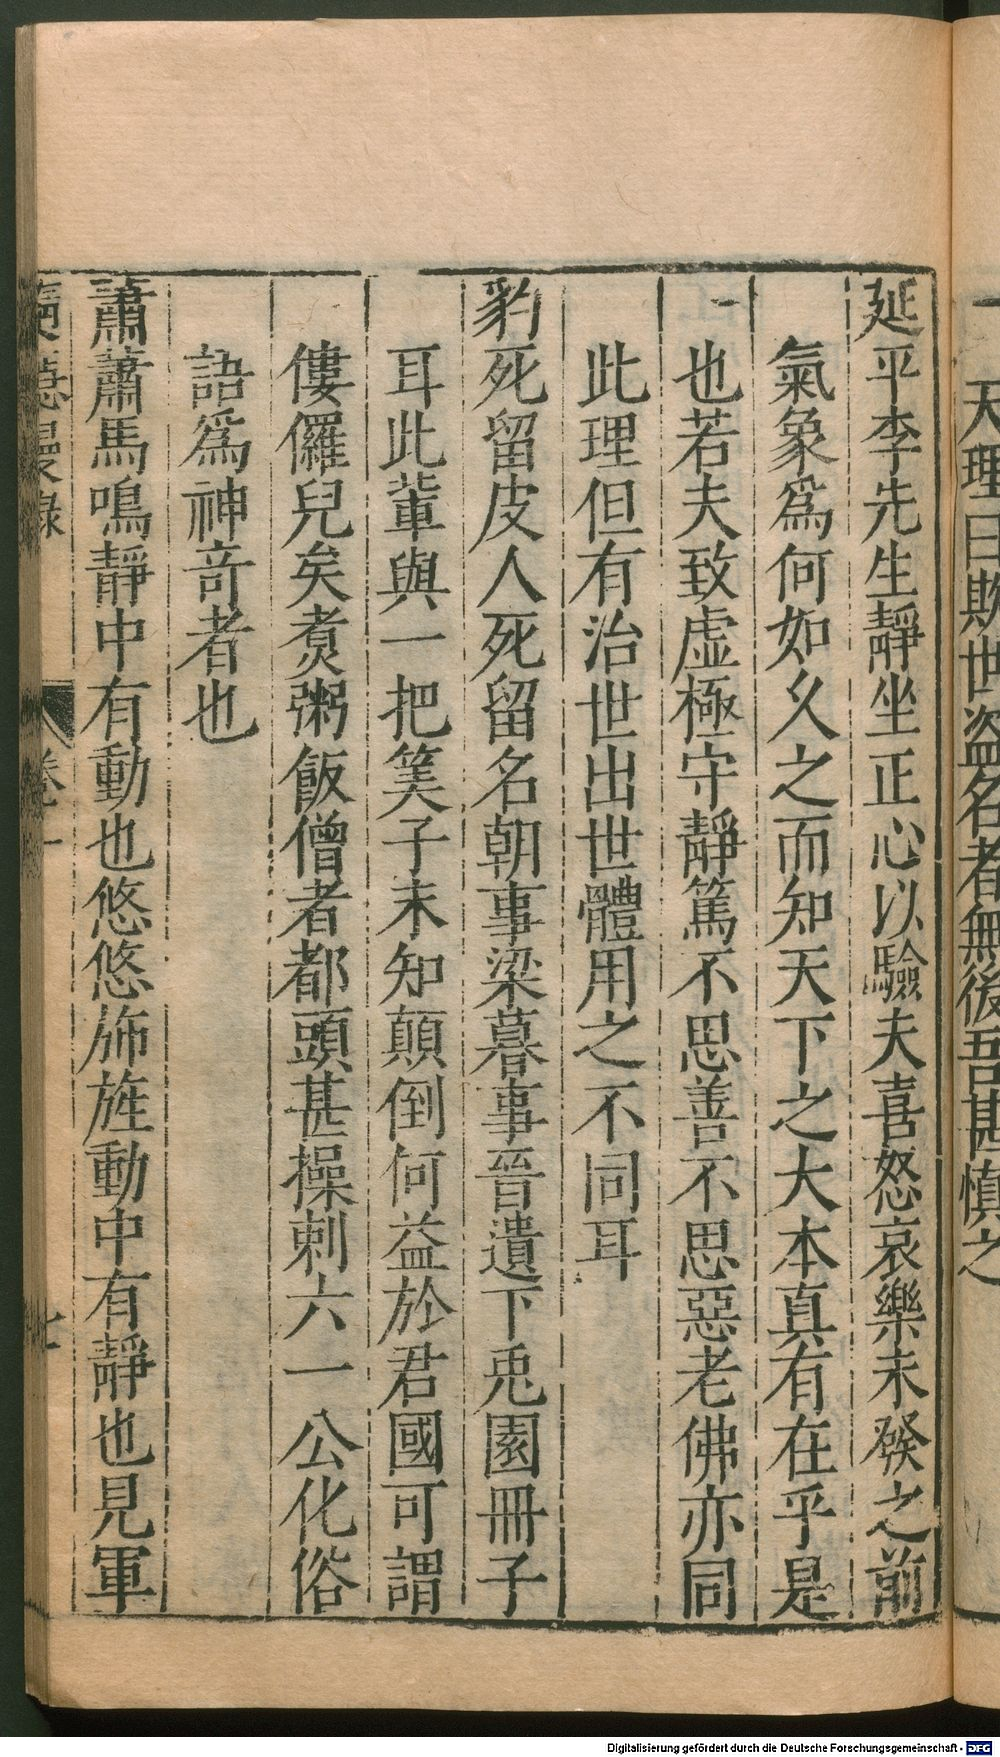 天理曰欺世盗名者無後吾甚慎之
延平李先生靜坐正心以驗夫喜怒哀樂未發之前
氣象爲何如久之而知天下之大本真有在乎是
也若夫致虛極守靜篤不思善不思惡老佛亦同
此理但有治世出世體用之不同耳
豹死留皮人死留名朝事梁暮事晉遺下兎園冊子
耳此輩與一把筭子未知顛倒何益於君國可謂
僂儸兒矣煑粥飯僧者都頭甚操剌六一公化俗
語爲神竒者也
蕭蕭馬鳴靜中有動也悠悠斾旌動中有靜也見軍
卷一
七
Digitalisierung gefördert durch die Deutsche Forschungsgemeinschaft - DFG